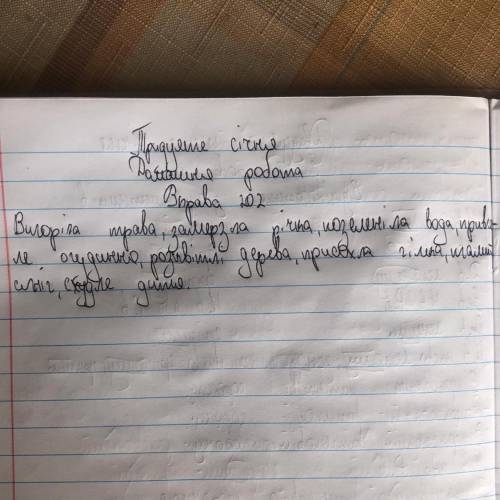 Тридцяте січня
Домашня робота
Вправа 202
Вигоріла трава, замерзла річка, позеленіла вода, прив'я-
ле огудиння, розквітлі дерева, присохла гілка, талий
сніг, схудле дитя.